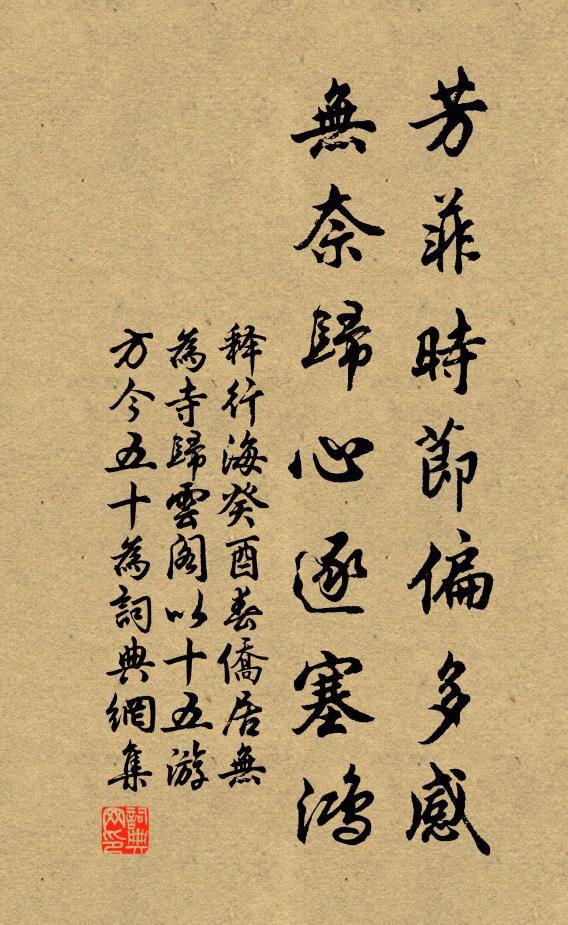 芳菲時節偏多感
無奈歸心逐塞鴻
释行海癸酉春僑居無
為寺歸雲閣以十五游
方今五十為詞典網集
詞典网印